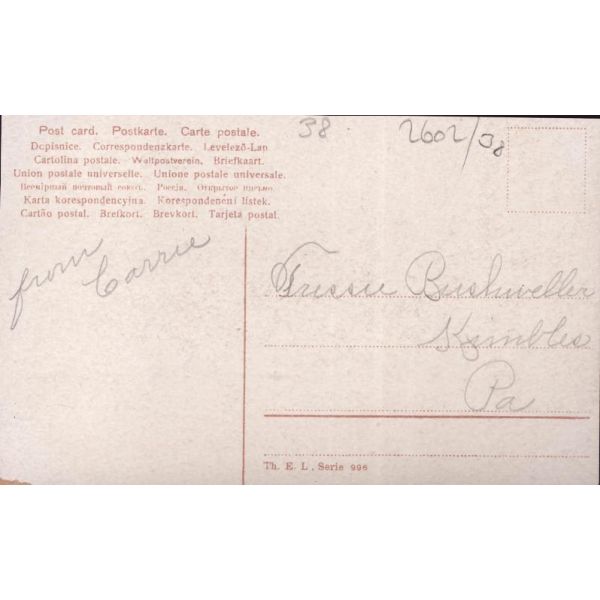 38
2602/38
Post card. Postkarte. Carte postale.
Dopisnice. Correspondenzkarte. Levelező-Lap
Cartolina postale. Weltpostverein. Briefkaart.
Union postale universelle. Unione postale universale.
Всемірный почтовый союзъ. Россія. Открытое письмо.
Karta korespondencyjna. Korespondenční lístek.
Cartão postal. Brefkort. Brevkort. Tarjeta postal.
from
Carrie
Tressie Bushweller
Kimbles
Pa
Th. E. L. Serie 996